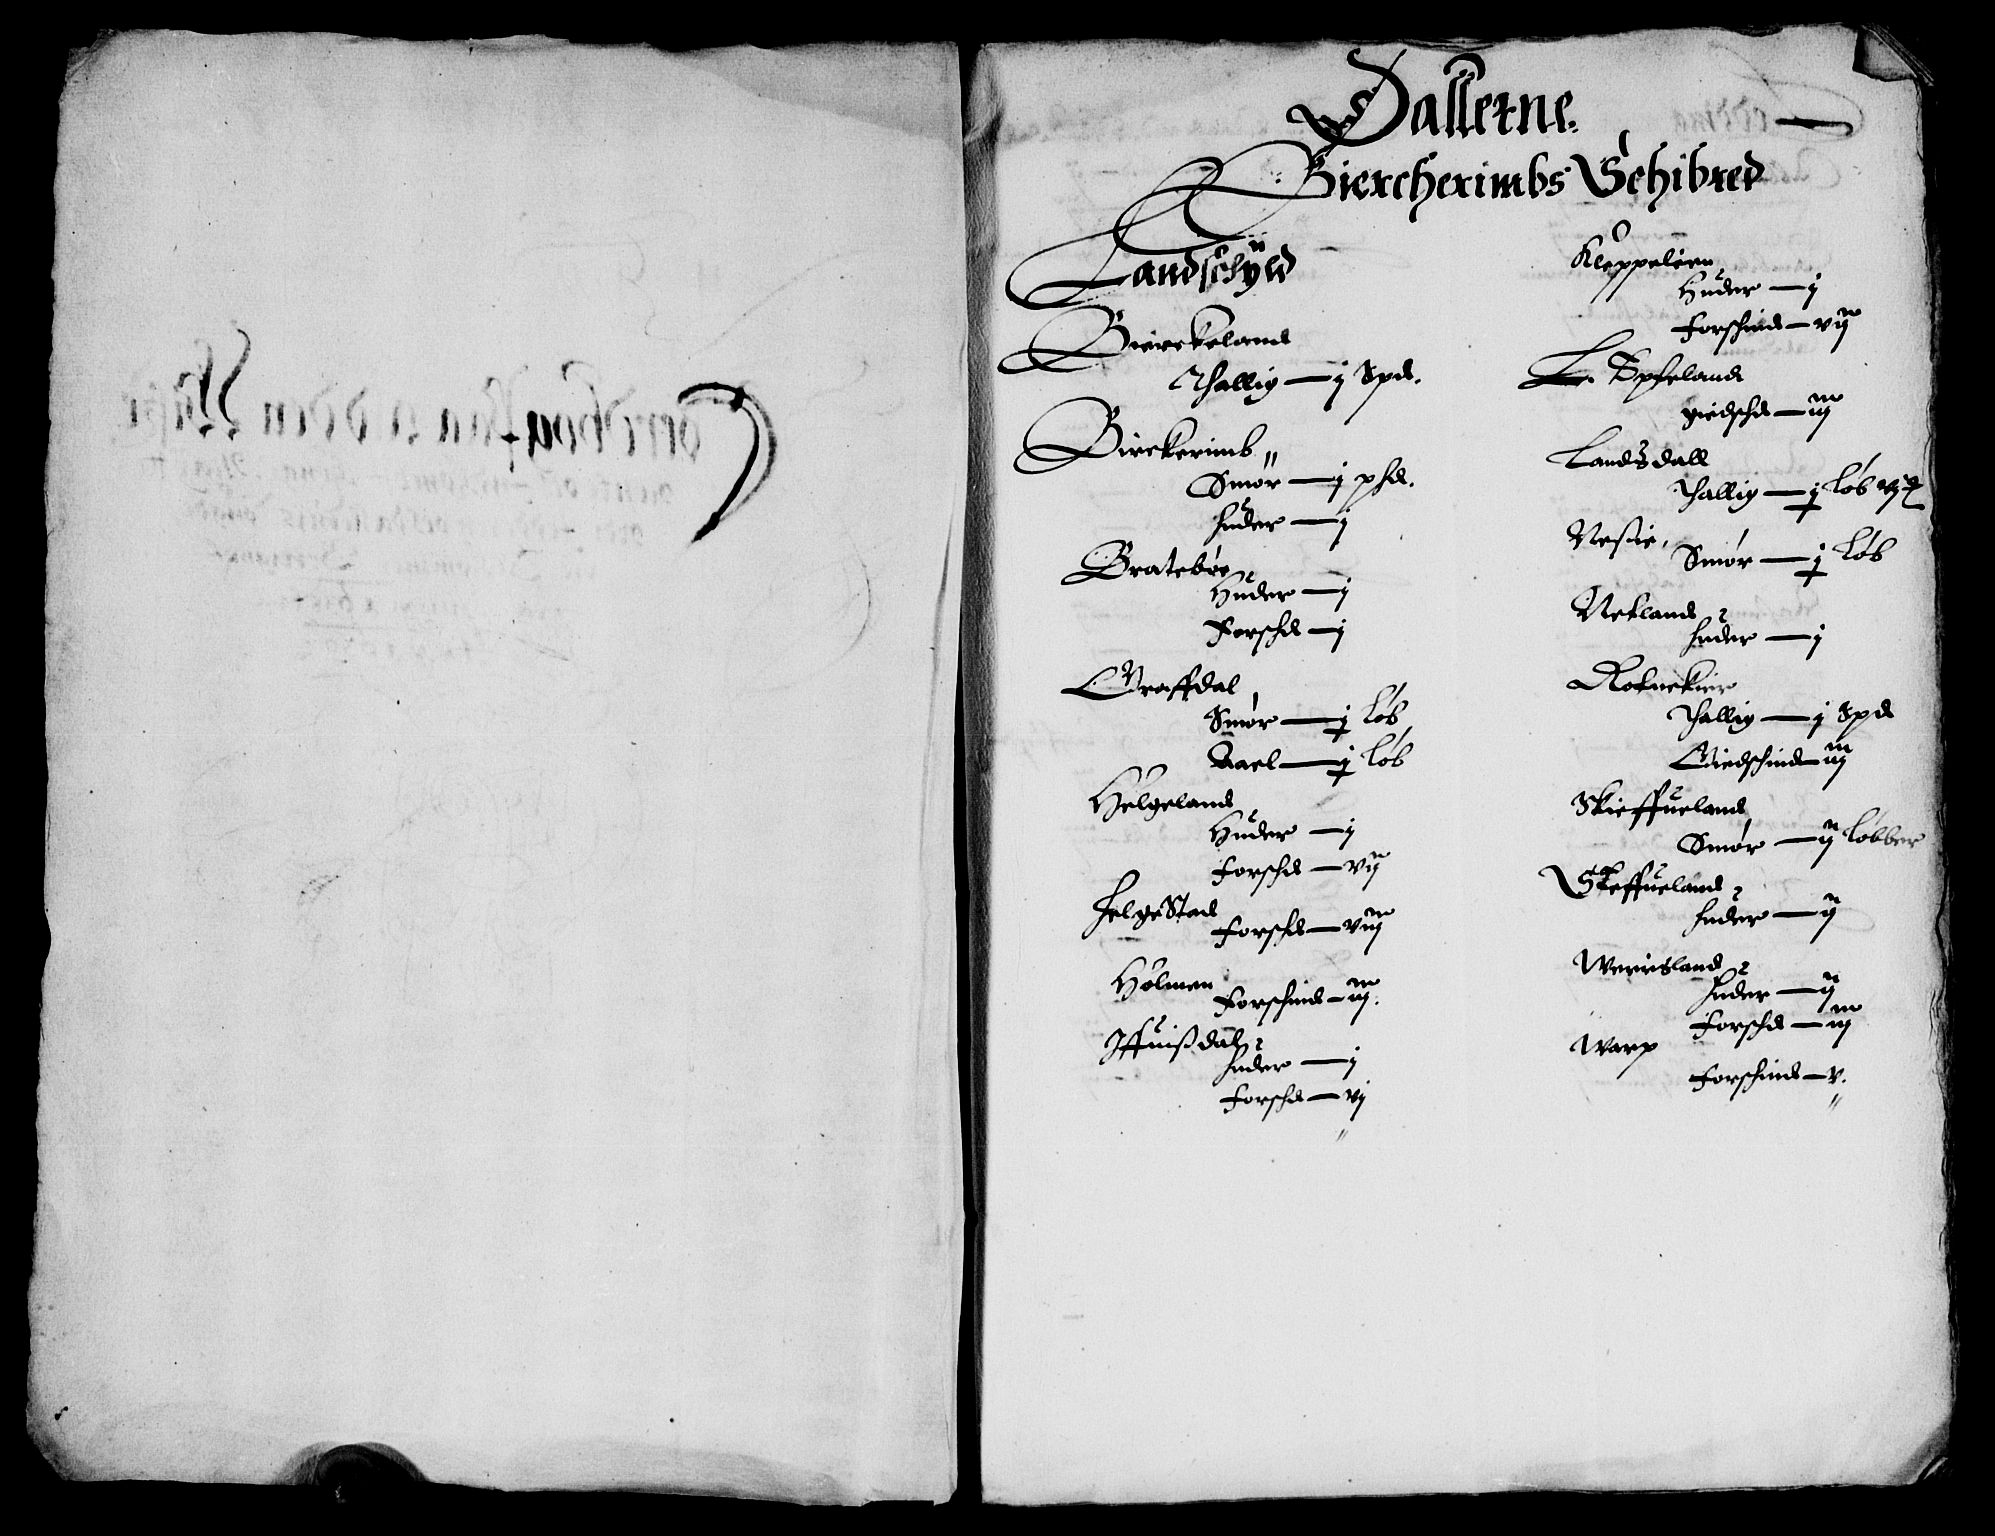 Dallerne.
Bierckerimbs Schibred
Landschyld
Bierckeland
Thallig — j Spd.
Birckerimb
Smør — j phd.
Huder — j
Bratebøe
Huder — j
Forschd — j
Graffdal
Smør — j løb
Aael — j løb
Helgeland
Huder — j
Forschd — vij
Helgestad
Forschd — viij
Holmen
Forschind — iij.
Iffuißdal
Huder — j
Forschd — vj
Kleppelien
Huder — j
Forschind — vij
L. Epseland
giedschd — iij
Landsdall
Thallig — j løb
Neßie
Smør — j løb
Nekland
Huder — j
Thallig — j Spd
Giedschind — iij
Skieffueland
Smør — ij løbber
Skeffueland
Huder — ij
Werrisland
Huder — ij
Forschd — iij
Warp
Forschind — v.